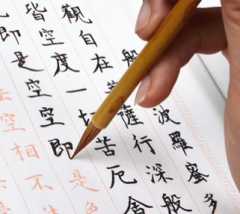 般波羅蜜多
觀自在菩薩行深般
皆空度一切苦厄舍
即是空空即是
空相不